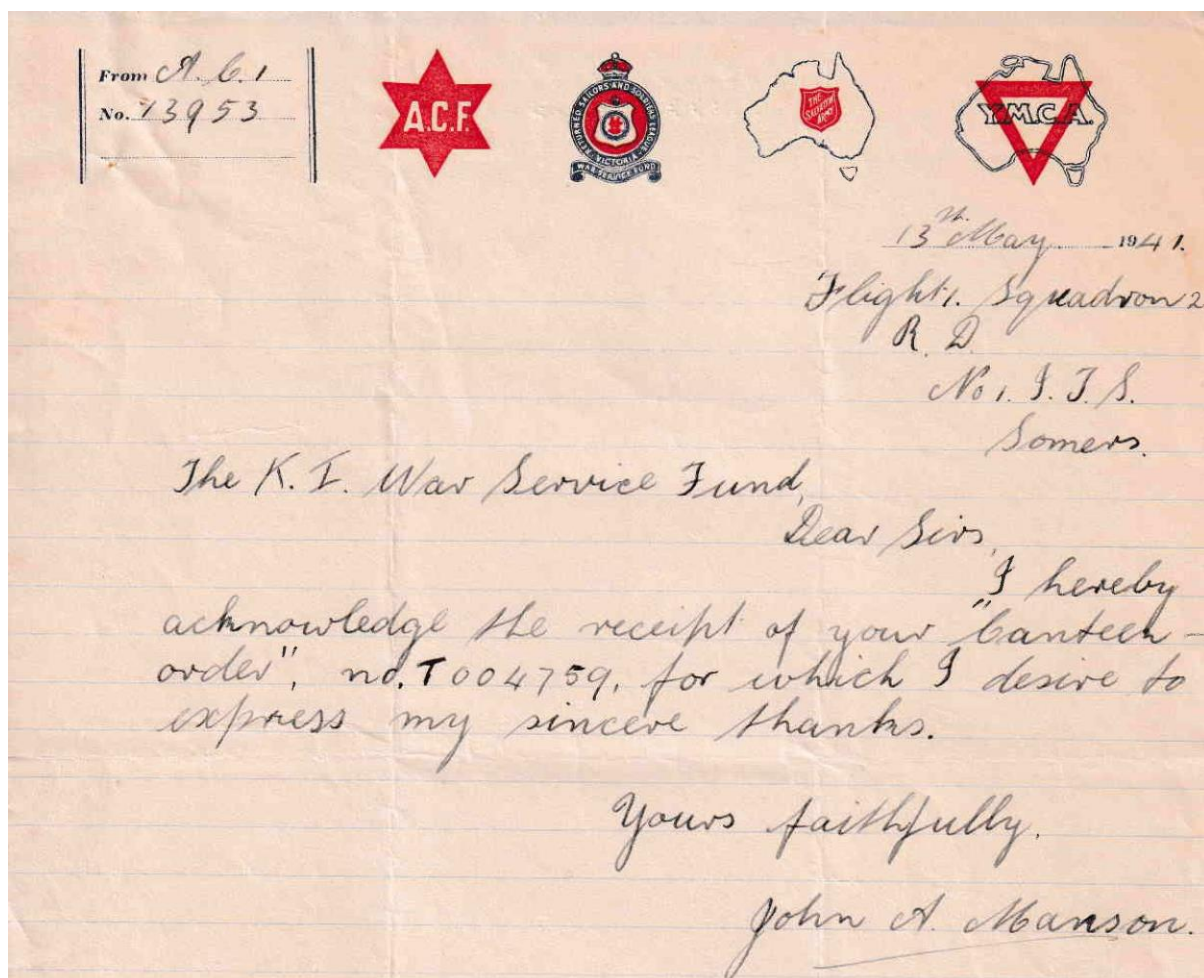 From A.C.1
No. 13953
A.C.F.
RETURNED SAILORS AND SOLDIERS LEAGUE
VICTORIA
WAR SERVICE FUND
THE
SALVATION
ARMY
Y.M.C.A.
13th May 1941.
Flight 1. Squadron 2
R. D.
No 1. I. T. S.
Somers.
The K. I. War Service Fund,
Dear Sirs,
I hereby
acknowledge the receipt of your "Canteen-
order", no. T004759, for which I desire to
express my sincere thanks.
Yours faithfully.
John A. Manson.